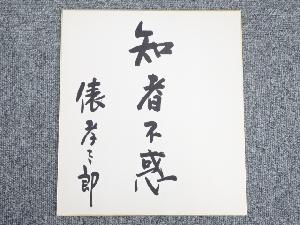 知者不惑
俵孝太郎